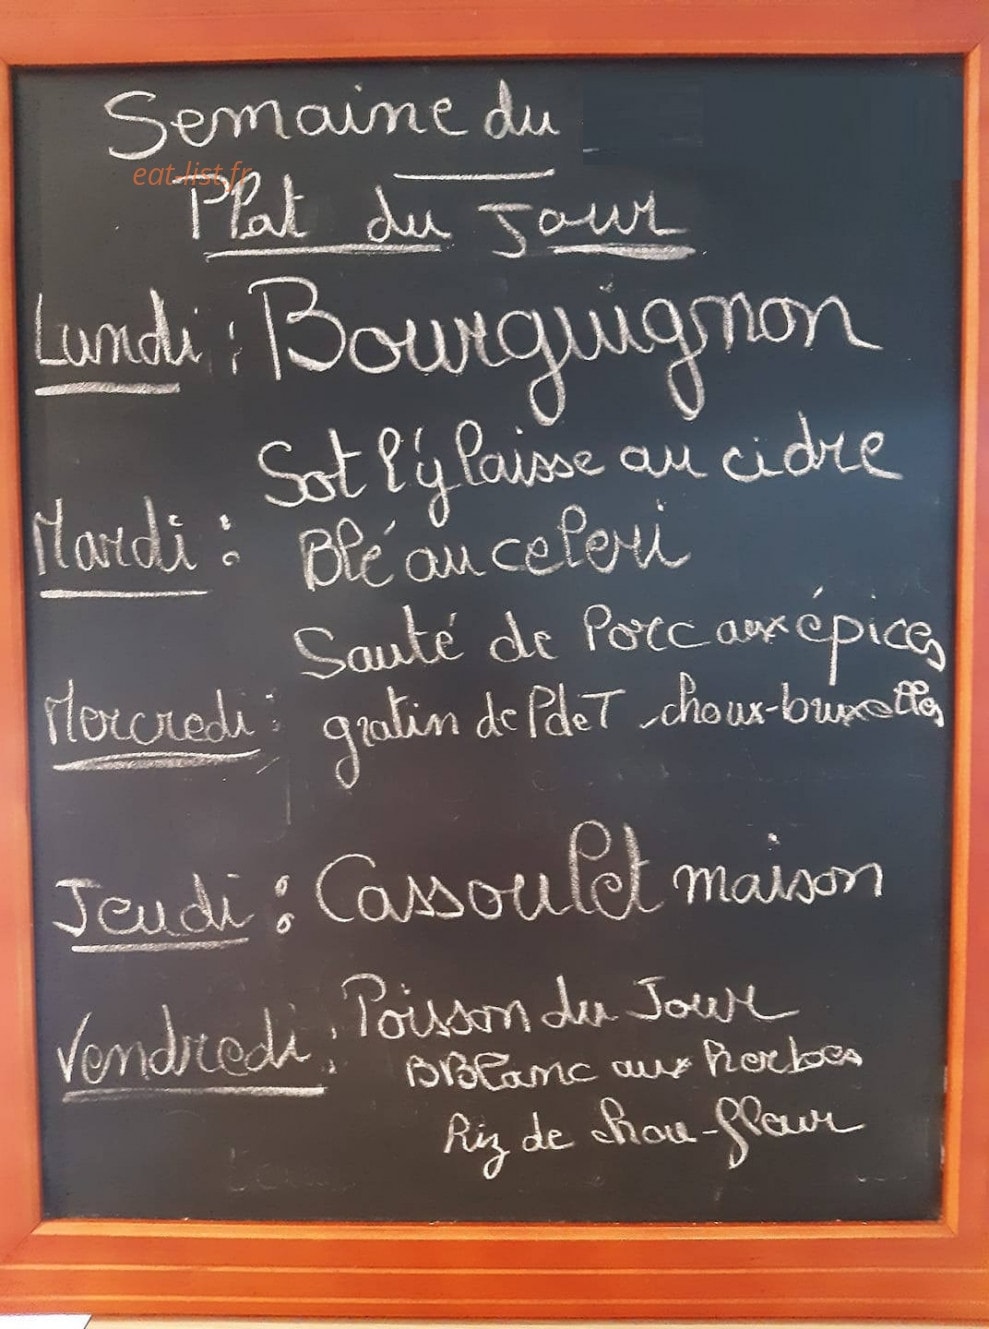 Semaine du
eat-list.fr
Plat du Jour
Lundi : Bourguignon
Sot l'y laisse au cidre
Mardi : Blé au celeri
Sauté de Porc aux épices
Mercredi : gratin de PdeT choux-bruxelles
Jeudi : Cassoulet maison
Vendredi : Poisson du Jour
BBlanc aux herbes
Riz de chou-fleur